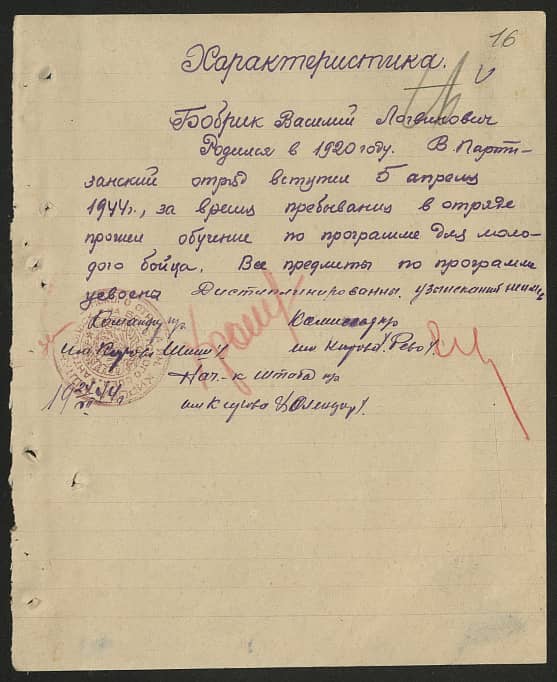 16
Характеристика.
Бобрик Василий Логвинович
Родился в 1920 году. В Парти-
занский отряд вступил 5 апреля
1944 г., за время пребывания в отряде
прошел обучение по программе для моло-
дого бойца. Все предметы по программе
усвоены Дисциплинированны, взысканий не имеет
Командир Комиссар
им Кирова Шиш им Кирова Рево
Нач-к штаба
им Кирова